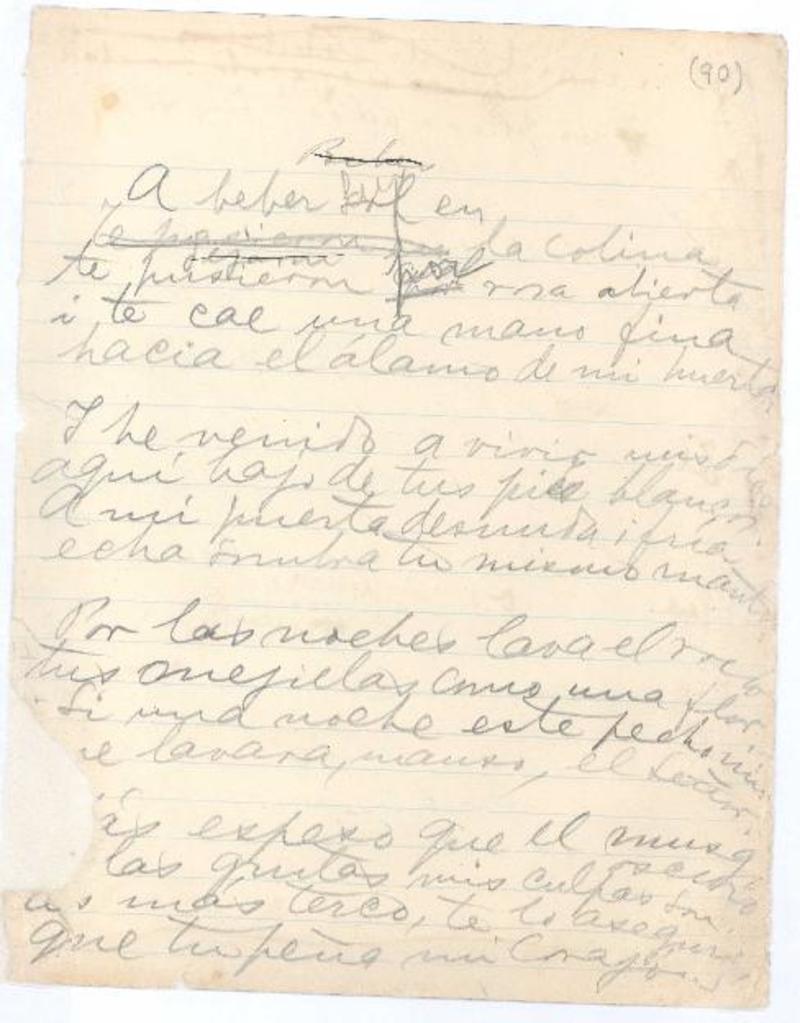 (90)
A beber luz en
la colina
te pusieron por rosa abierta
i te cae una mano fina
hacia el álamo de mi huerta
I he venido a vivir mis días
aquí bajo de tus pies blancos.
A mi puerta desnuda i fría
echa sombra tu mismo manto
Por las noches lava el rocío
tus mejillas como una flor.
Si una noche este pecho mío
me lavara, manso, el Señor.
ás espeso que el musgo
oscuro
las grutas mis culpas son.
más terco, te lo aseguro
que tu peña mi corazón